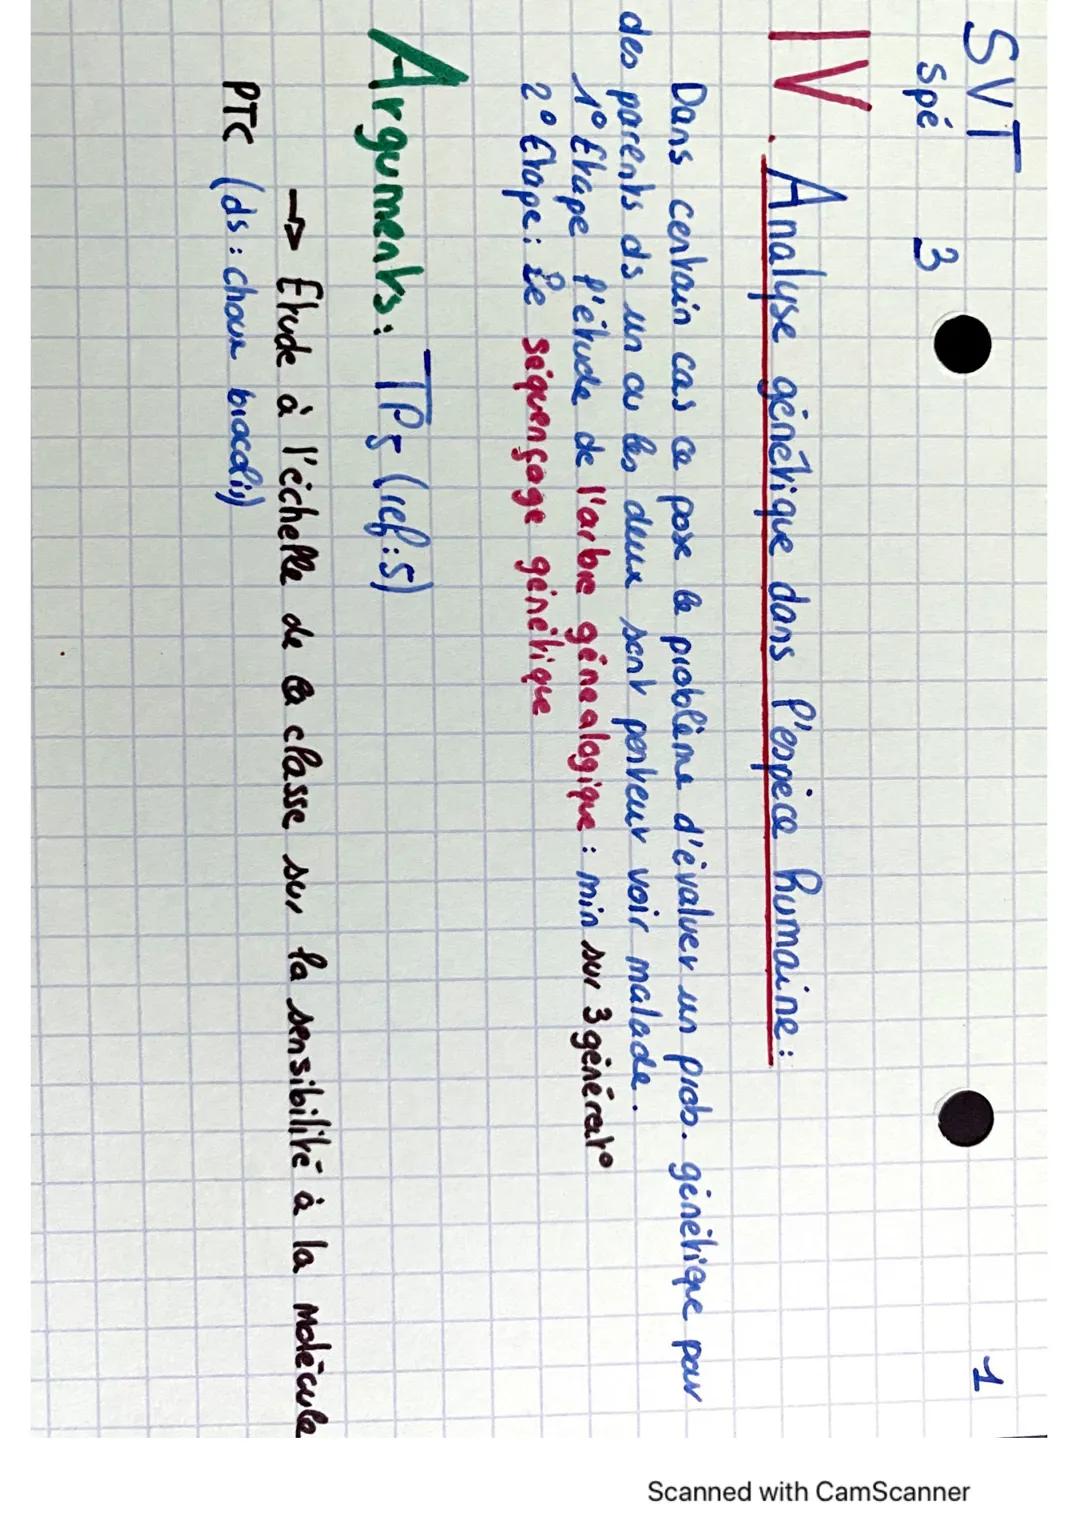 SVT
spé 3
1
IV. Analyse génétique dans l'espèce humaine :
Dans certain cas ce pose le problème d'évaluer un prob. génétique pour
des parents ds un ou les deux sont porteur voir malade.
1° Etape l'étude de l'arbre génealogique : min sur 3 générat°
2° Etape : Le séquençage génétique
Arguments : TP5 (ref : 5)
→ Etude à l'échelle de la classe sur la sensibilité à la molécule
PTC (ds : choux bracolis)
Scanned with CamScanner